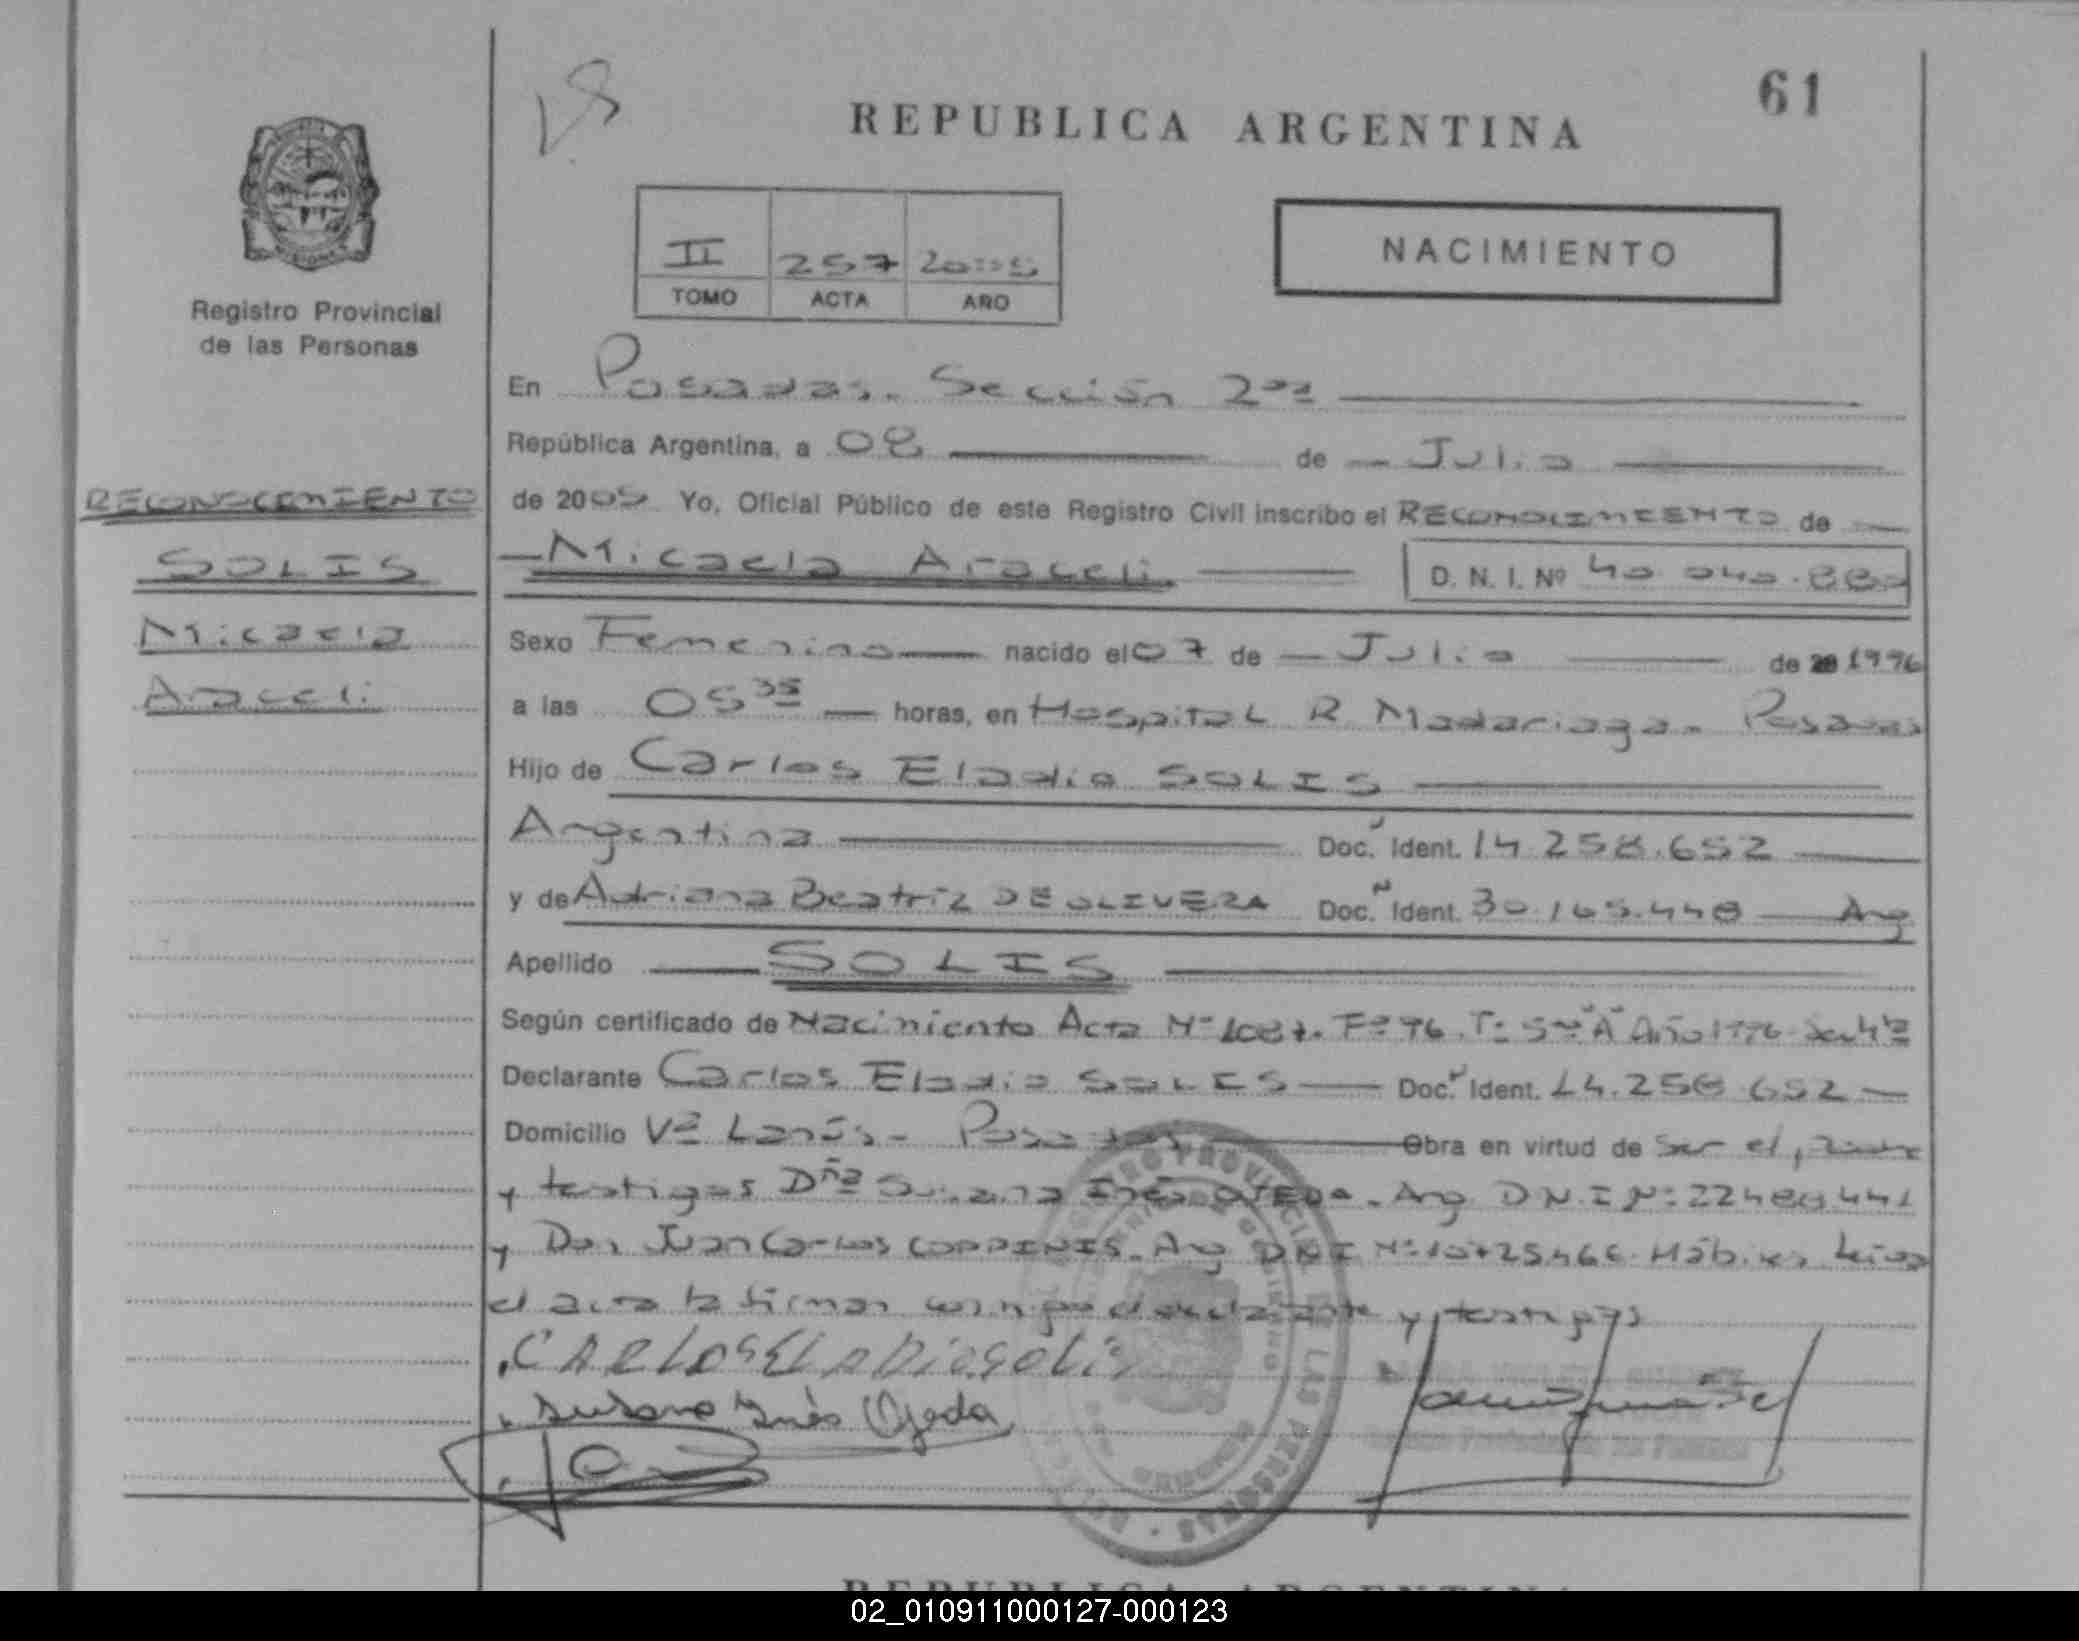 61
REPUBLICA ARGENTINA
II 257 2005
TOMO ACTA AÑO
NACIMIENTO
Registro Provincial
de las Personas
En Posadas. Sección 2da
República Argentina, a 08 de Julio
RECONOCIMIENTO
de 2005 Yo, Oficial Público de este Registro Civil inscribo el RECONOCIMIENTO de
SOLIS
Micaela Araceli D. N. I. Nº 40.040.880
Micaela
Sexo Femenino nacido el 07 de Julio de 1996
Araceli
a las 05 35 horas, en Hospital R. Madariaga. Posadas
Hijo de Carlos Eladio SOLIS
Argentina Doc. Ident. 14.258.652
y de Adriana Beatriz DE OLIVERA Doc. Ident. 30.165.448 Arg
Apellido SOLIS
Según certificado de Nacimiento Acta Nº 1087. Fº 96. Tº 5to "A" Año 1996 Sec 4ta
Declarante Carlos Eladio SOLIS Doc. Ident. 14.258.652
Domicilio Vª Lanús - Posadas Obra en virtud de ser el padre
y testigos Dña Susana Inés OJEDA. Arg D.N.I Nº 22480441
y Don Juan Carlos Arg DNI Nº Hábiles
el acta la firman y testigos
CARLOS ELADIO Solis
Susana Inés Ojeda
REGISTRO PROVINCIAL DE LAS PERSONAS
REPUBLICA ARGENTINA
02_010911000127-000123